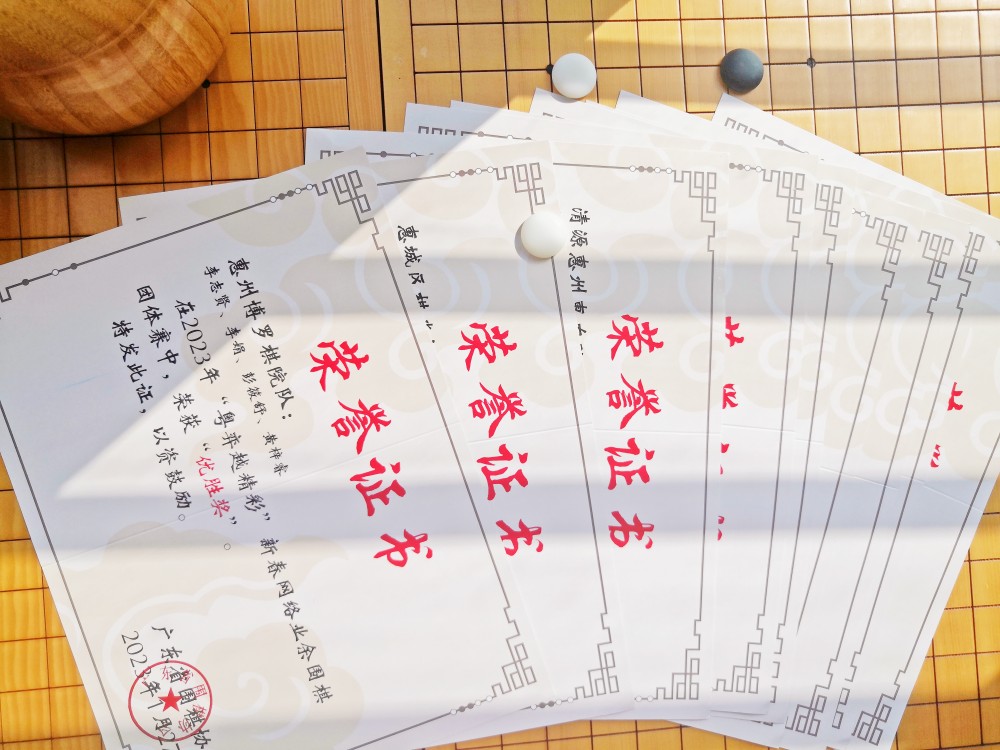 荣誉证书
惠州博罗棋院队：
李志贤、李娟、彭筱舒、黄梓睿
在2023年“粤弈越精彩”新春网络业余围棋
团体赛中，荣获“优胜奖”。
特发此证，以资鼓励。
广东省围棋协
2023年1月2
荣誉证书
惠城区
荣誉证书
清源惠州